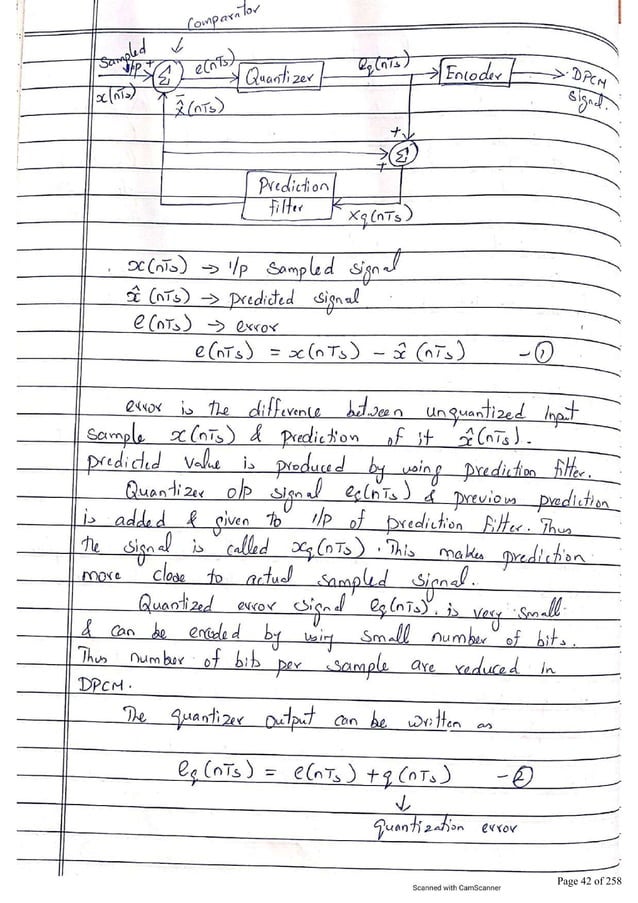 Comparator
Sampled
i/p +
x(nTs)
Σ
e(nTs)
Quantizer
eq(nTs)
Encoder
DPCM
signal.
x̂(nTs)
+
Σ
+
Prediction
filter
xq(nTs)
x(nTs) → i/p sampled signal
x̂(nTs) → predicted signal
e(nTs) → error
e(nTs) = x(nTs) - x̂(nTs) -①
error is the difference between unquantized Input
sample x(nTs) & prediction of it x̂(nTs).
predicted value is produced by using prediction filter.
Quantizer o/p signal eq(nTs) & previous prediction
is added & given to i/p of prediction filter. Thus
the signal is called xq(nTs). This makes prediction
more close to actual sampled signal.
Quantized error signal eq(nTs). is very small
& can be encoded by using small number of bits.
Thus number of bits per sample are reduced in
DPCM.
The quantizer output can be written as
eq(nTs) = e(nTs) + q(nTs) -②
↓
quantization error
Page 42 of 258
Scanned with CamScanner